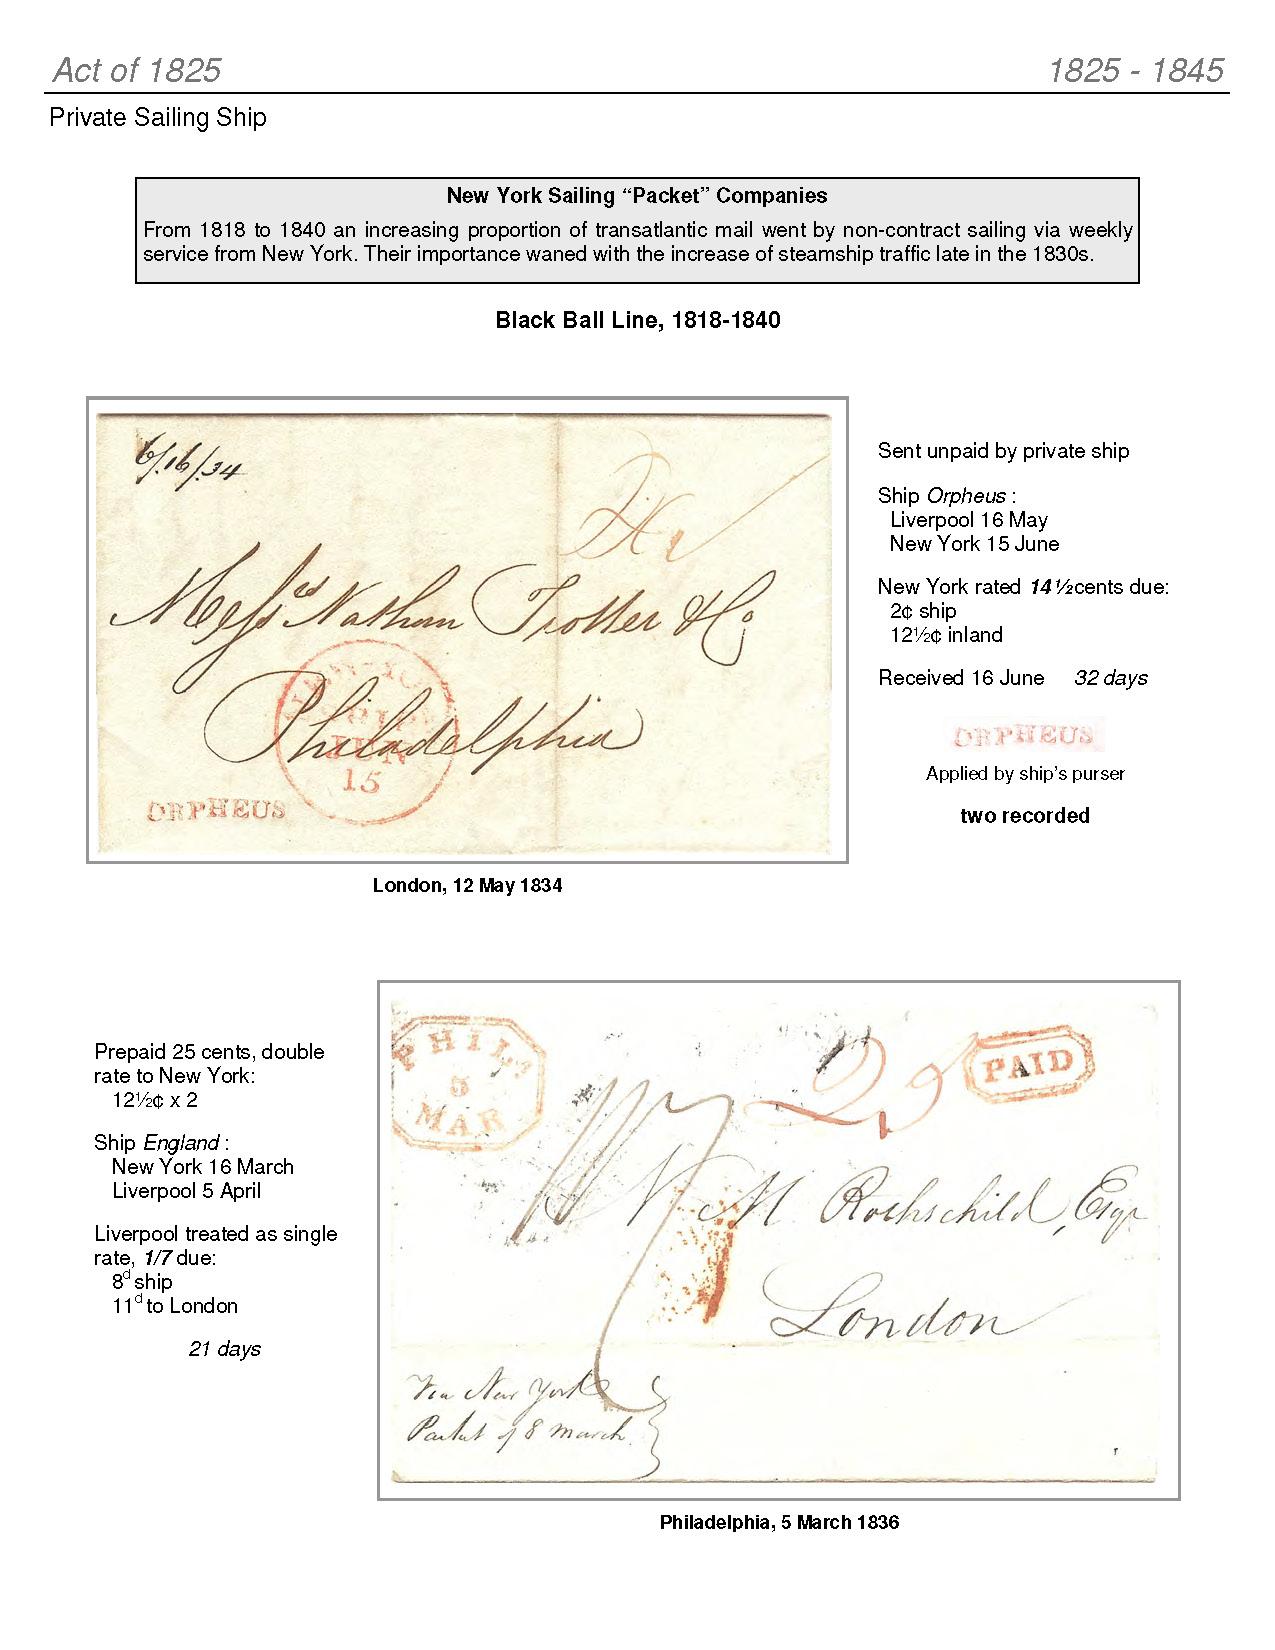 Act of 1825
1825 - 1845
Private Sailing Ship
New York Sailing “Packet” Companies
From 1818 to 1840 an increasing proportion of transatlantic mail went by non-contract sailing via weekly
service from New York. Their importance waned with the increase of steamship traffic late in the 1830s.
Black Ball Line, 1818-1840
6/16/34
Messrs Nathan Trotter & Co
Philadelphia
NEW-YORK
SHIP
JUN
15
ORPHEUS
London, 12 May 1834
Sent unpaid by private ship
Ship Orpheus :
Liverpool 16 May
New York 15 June
New York rated 14½cents due:
2¢ ship
12½¢ inland
Received 16 June 32 days
ORPHEUS
Applied by ship’s purser
two recorded
Prepaid 25 cents, double
rate to New York:
12½¢ x 2
Ship England :
New York 16 March
Liverpool 5 April
Liverpool treated as single
rate, 1/7 due:
8d ship
11d to London
21 days
PHILA
5
MAR
PAID
N M Rothschild, Esqr
London
Via New York
Packet of 8 march
Philadelphia, 5 March 1836